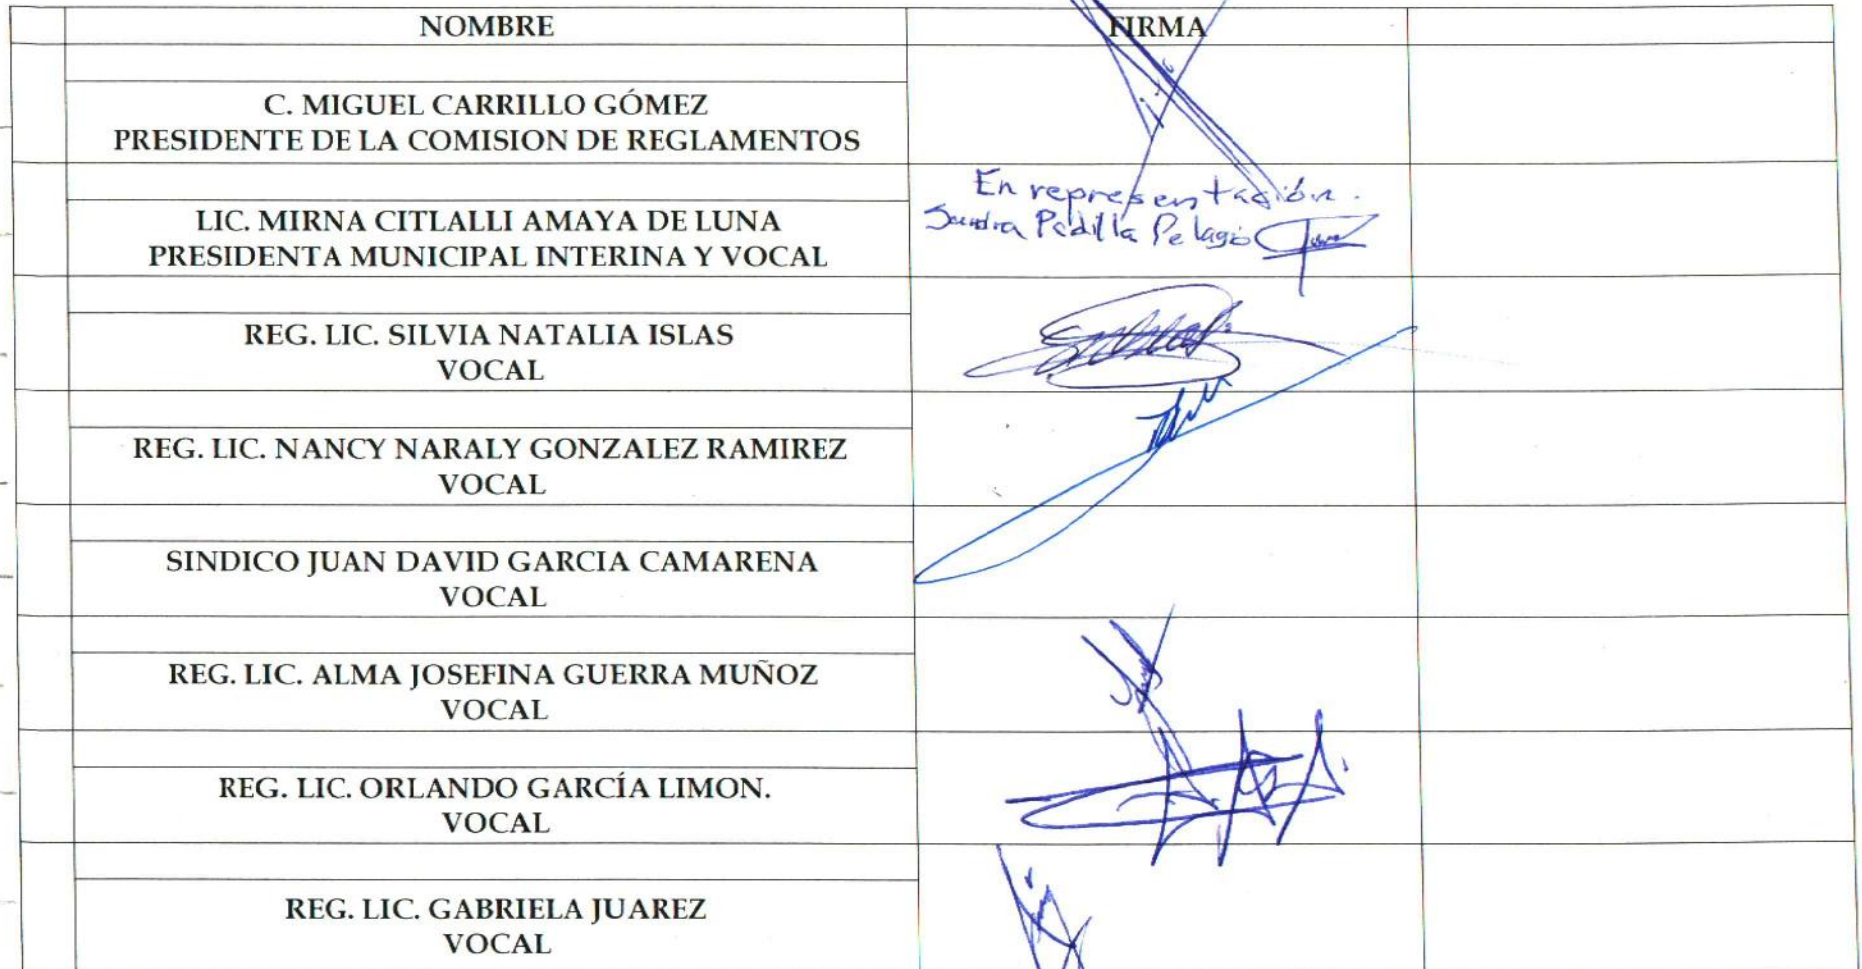 NOMBRE FIRMA
C. MIGUEL CARRILLO GÓMEZ
PRESIDENTE DE LA COMISION DE REGLAMENTOS
En representación.
LIC. MIRNA CITLALLI AMAYA DE LUNA
Sandra Padilla Pelagio
PRESIDENTA MUNICIPAL INTERINA Y VOCAL
REG. LIC. SILVIA NATALIA ISLAS
VOCAL
REG. LIC. NANCY NARALY GONZALEZ RAMIREZ
VOCAL
SINDICO JUAN DAVID GARCIA CAMARENA
VOCAL
REG. LIC. ALMA JOSEFINA GUERRA MUÑOZ
VOCAL
REG. LIC. ORLANDO GARCÍA LIMON.
VOCAL
REG. LIC. GABRIELA JUAREZ
VOCAL